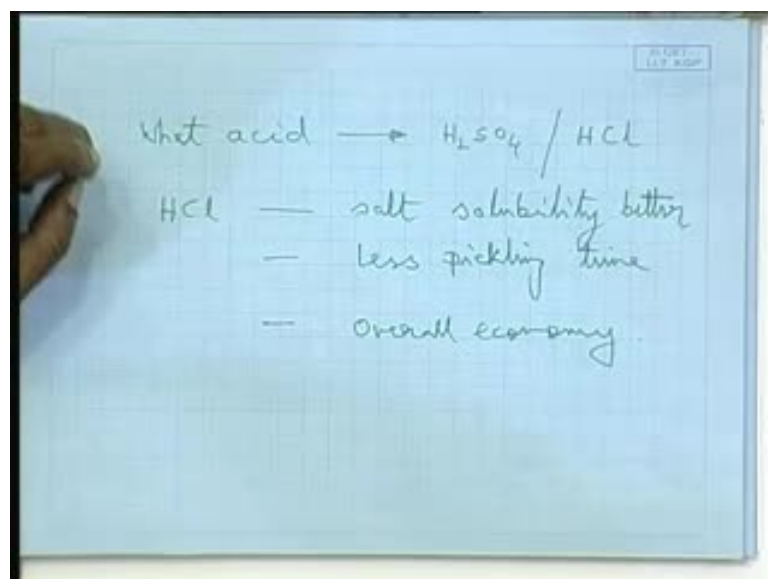 What acid → H₂SO₄ / HCl
HCl — salt solubility better
— Less pickling time
— Overall economy.